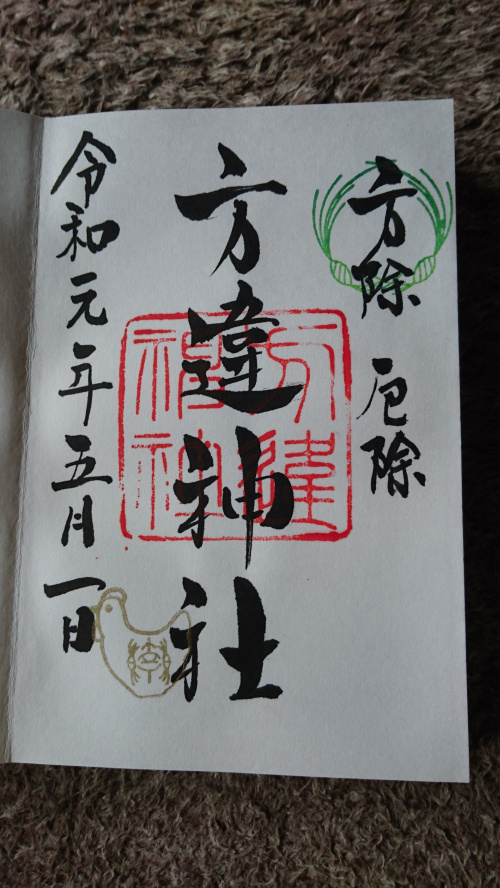 方除 厄除
方違神社
方違
神社
令和元年五月一日